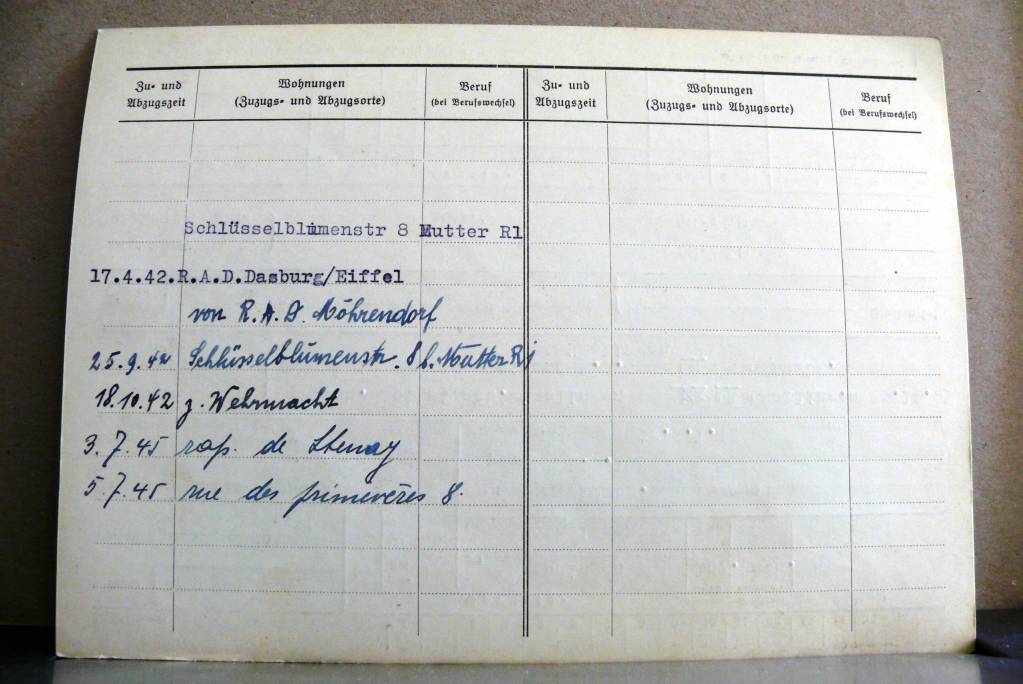 Zu- und Abzugszeit
Wohnungen
(Zuzugs- und Abzugsorte)
Beruf
(bei Berufswechsel)
Zu- und Abzugszeit
Wohnungen
(Zuzugs- und Abzugsorte)
Beruf
(bei Berufswechsel)
Schlüsselblumenstr 8 Mutter R1
17.4.42.R.A.D.Dasburg/Eiffel
von R.A.D. Möhrendorf
25.9.42 Schlüsselblumenstr. 8 b. Mutter R1
18.10.42 z. Wehrmacht
3.7.45 rap. de Stenay
5.7.45 rue des primevères 8.